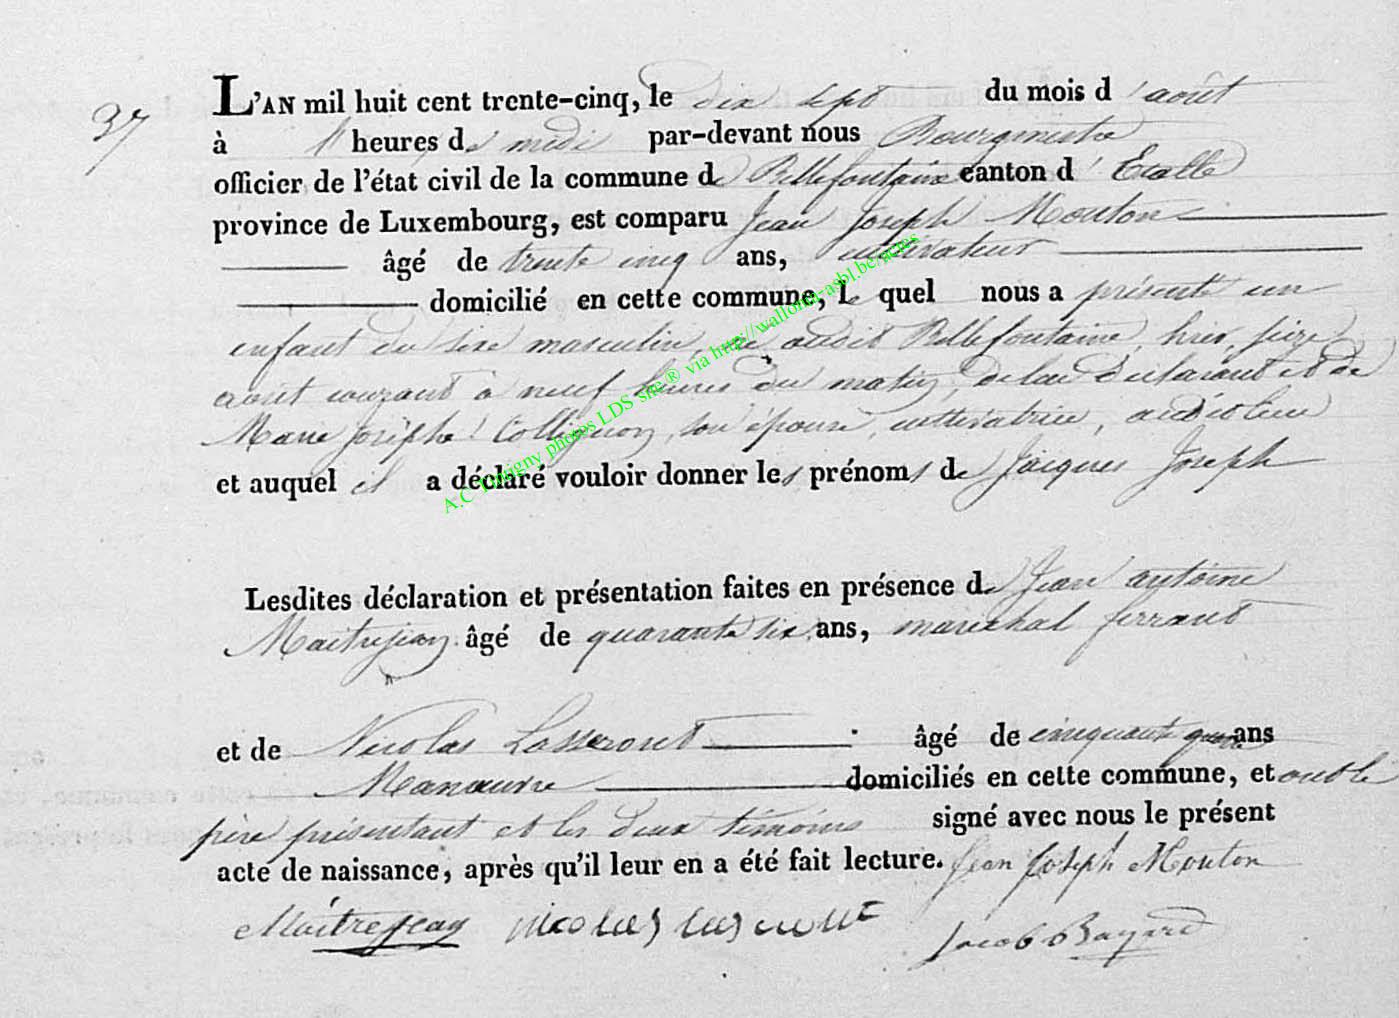 37
L'AN mil huit cent trente-cinq, le dix sept du mois d'août
à heures de midi par-devant nous Bourgmestre
officier de l'état civil de la commune de Bellefontaine canton d'Etalle
province de Luxembourg, est comparu Jean Joseph Mouton
âgé de trente cinq ans, cultivateur
domicilié en cette commune, Le quel nous a présenté un
enfant du sexe masculin, né audit Bellefontaine, hier, seize
aout courant à neuf heures du matin, de lui Déclarant et de
Marie Josèphe Collignon, son épouse, cultivatrice, audit lieu
et auquel il a déclaré vouloir donner les prénoms de Jacques Joseph
Lesdites déclaration et présentation faites en présence de Jean antoine
Maitrejean âgé de quarante six ans, maréchal ferrant
et de Nicolas Lasseront âgé de cinquante quatre ans
Manœuvre domiciliés en cette commune, et ont le
père présentant et les deux témoins signé avec nous le présent
acte de naissance, après qu'il leur en a été fait lecture. Jean Joseph Mouton
Maitrejean Nicolas Jacob Bayard
A.C Tintigny photos LDS site ® via http://wallonia-asbl.be/actes